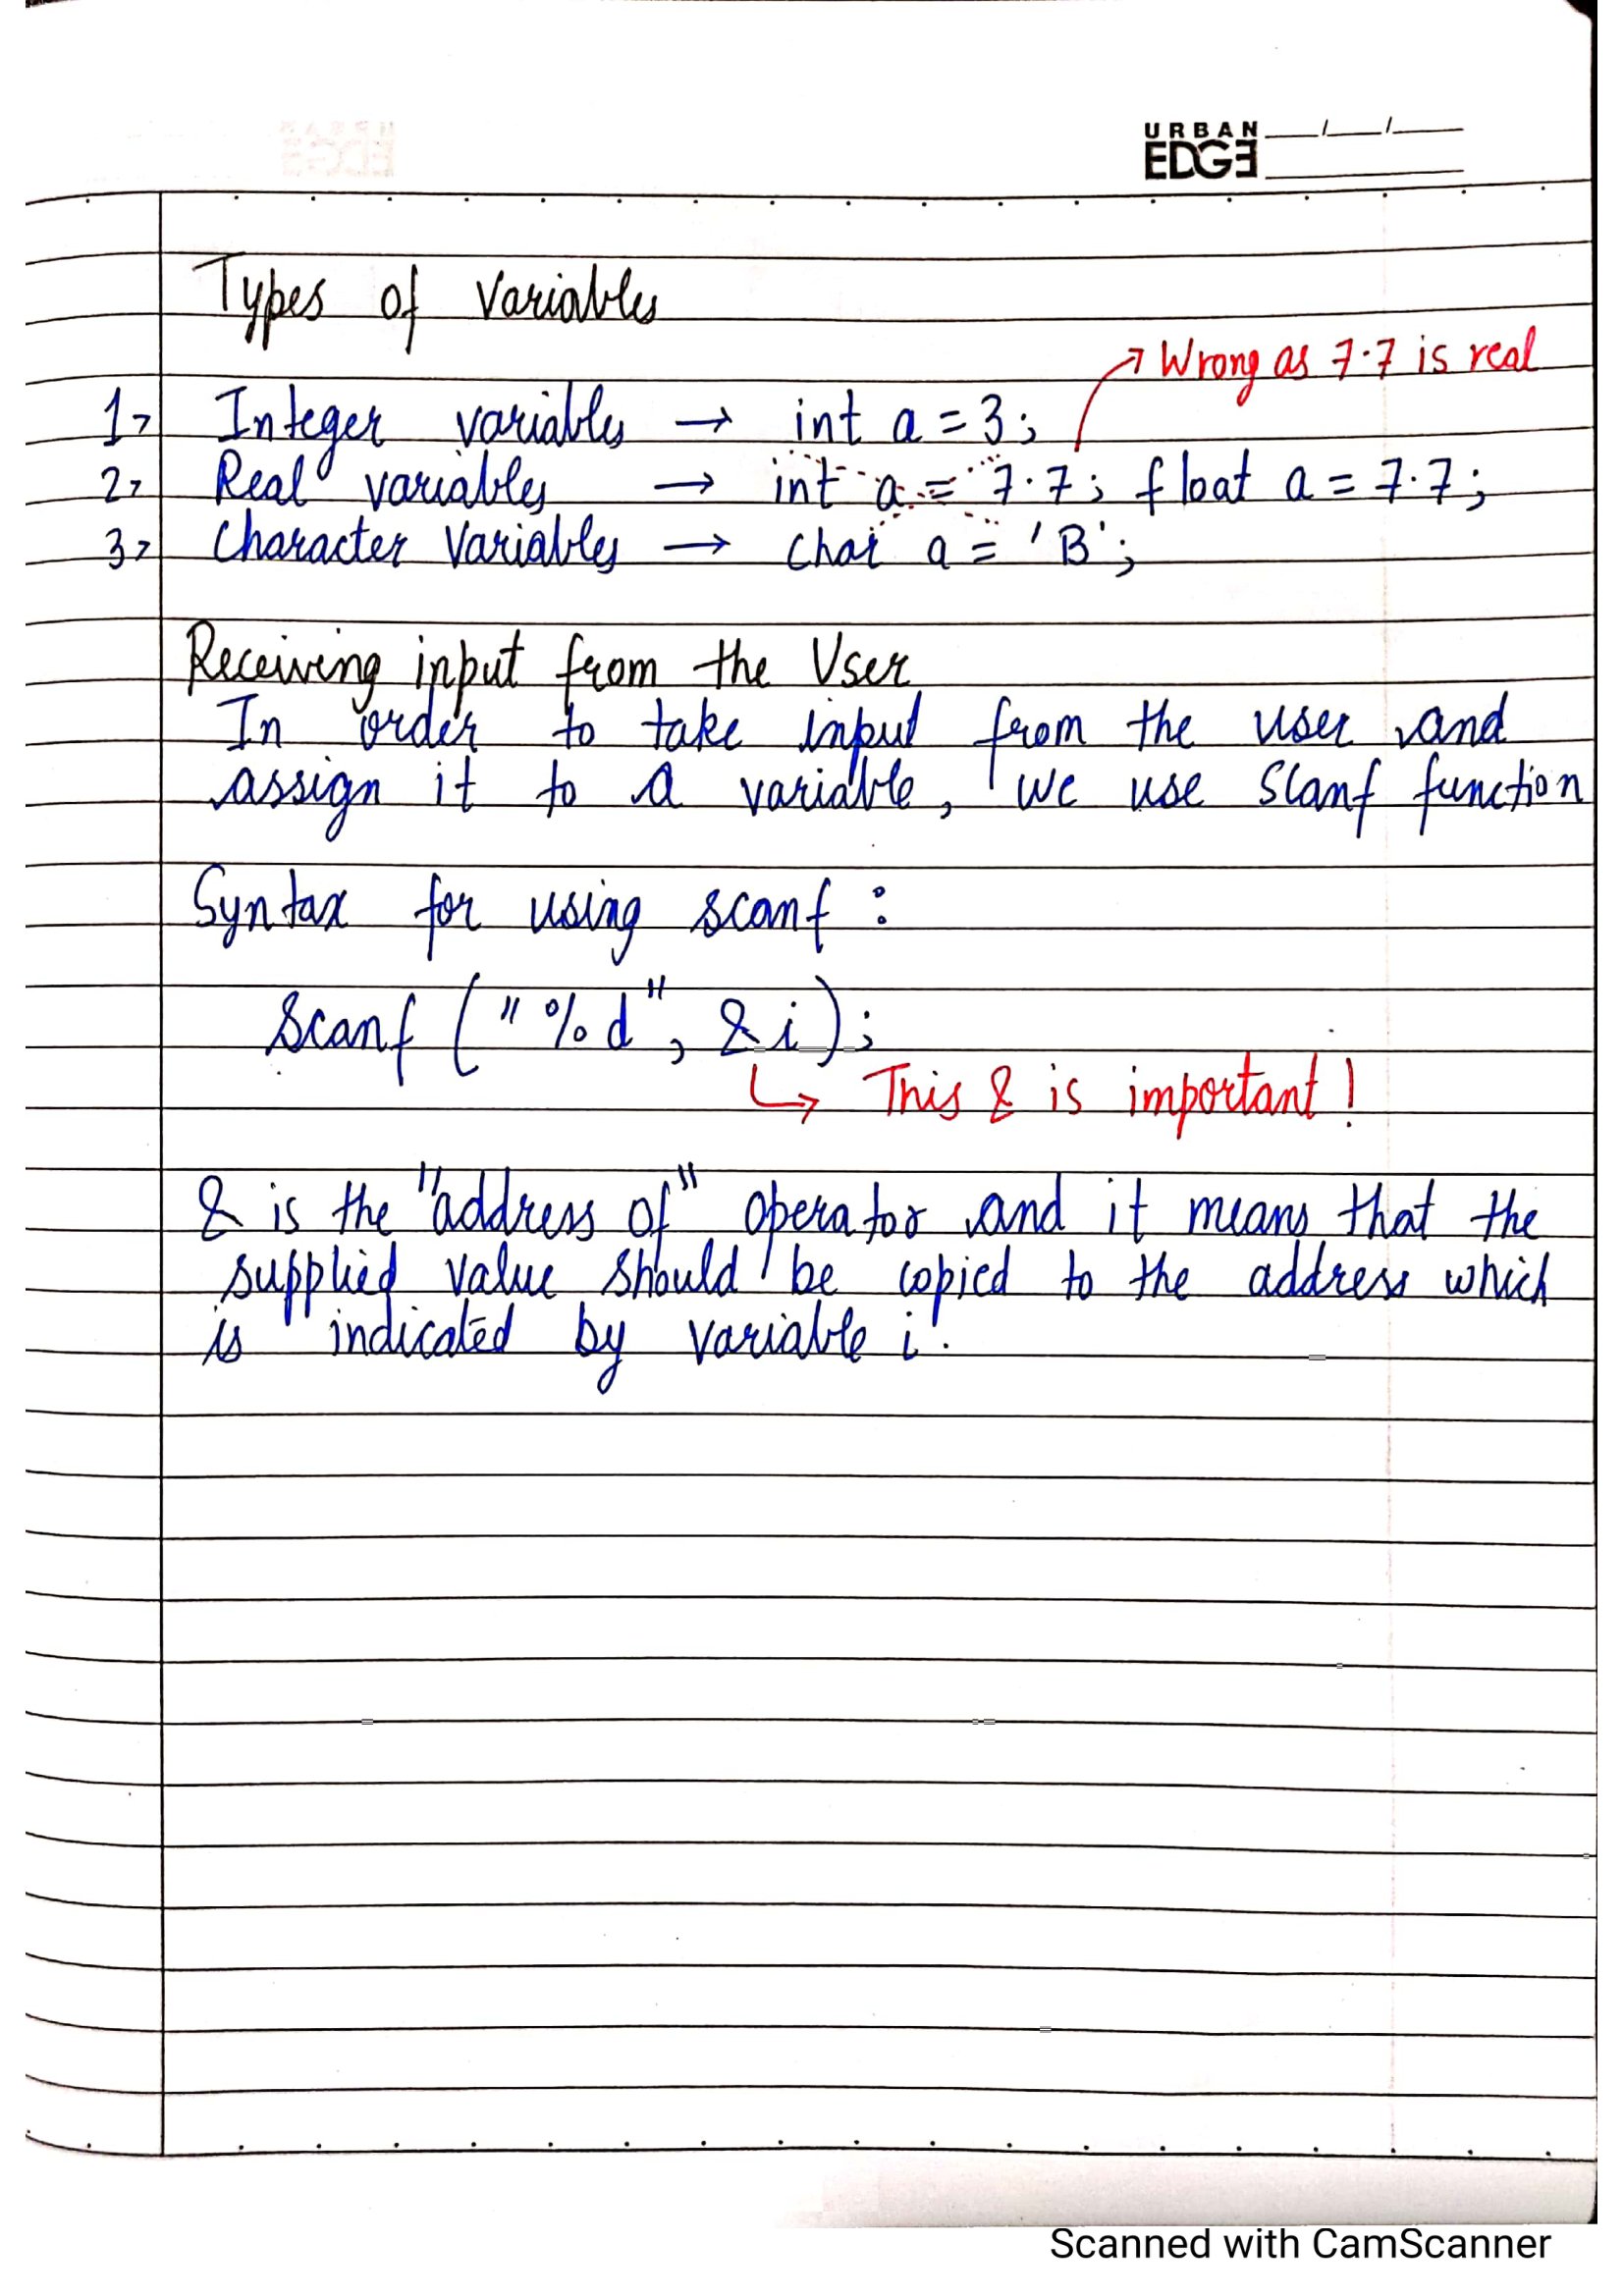 URBAN
EDGE
Types of Variables
→ Wrong as 7.7 is real
1> Integer variables → int a = 3;
2> Real variables → int a = 7.7; float a = 7.7;
3> Character Variables → char a = 'B';
Receiving input from the User
In order to take input from the user and
assign it to a variable, we use Scanf function
Syntax for using scanf :
Scanf ("%d", &i);
↳ This & is important!
& is the "address of" operator and it means that the
supplied value should be copied to the address which
is indicated by variable i.
Scanned with CamScanner